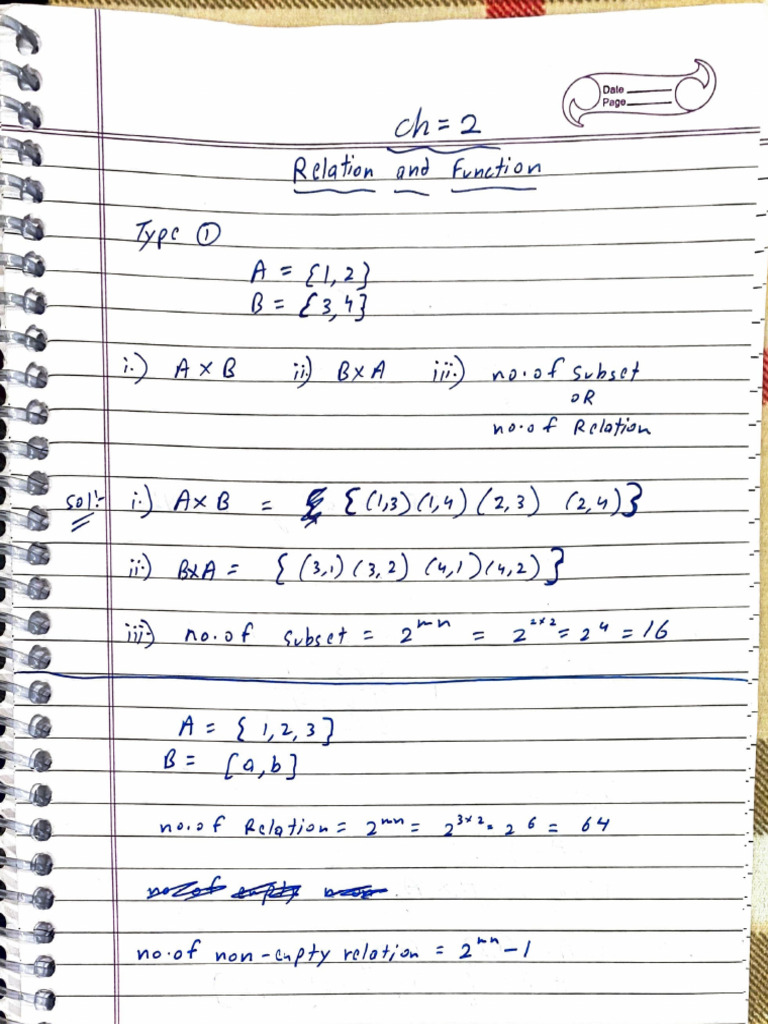 Date
Page
ch = 2
Relation and Function
Type ①
A = {1, 2}
B = {3, 4}
i.) A × B ii) B×A iii.) no. of subset
OR
no. of Relation
Sol:- i.) A×B = { (1,3) (1,4) (2,3) (2,4)}
ii.) B×A = { (3,1) (3,2) (4,1) (4,2) }
iii) no. of subset = 2^mn = 2^2×2 = 2^4 = 16
A = { 1, 2, 3 }
B = [a, b]
no. of Relation = 2^mn = 2^3×2 = 2^6 = 64
no. of non-empty relation = 2^mn - 1